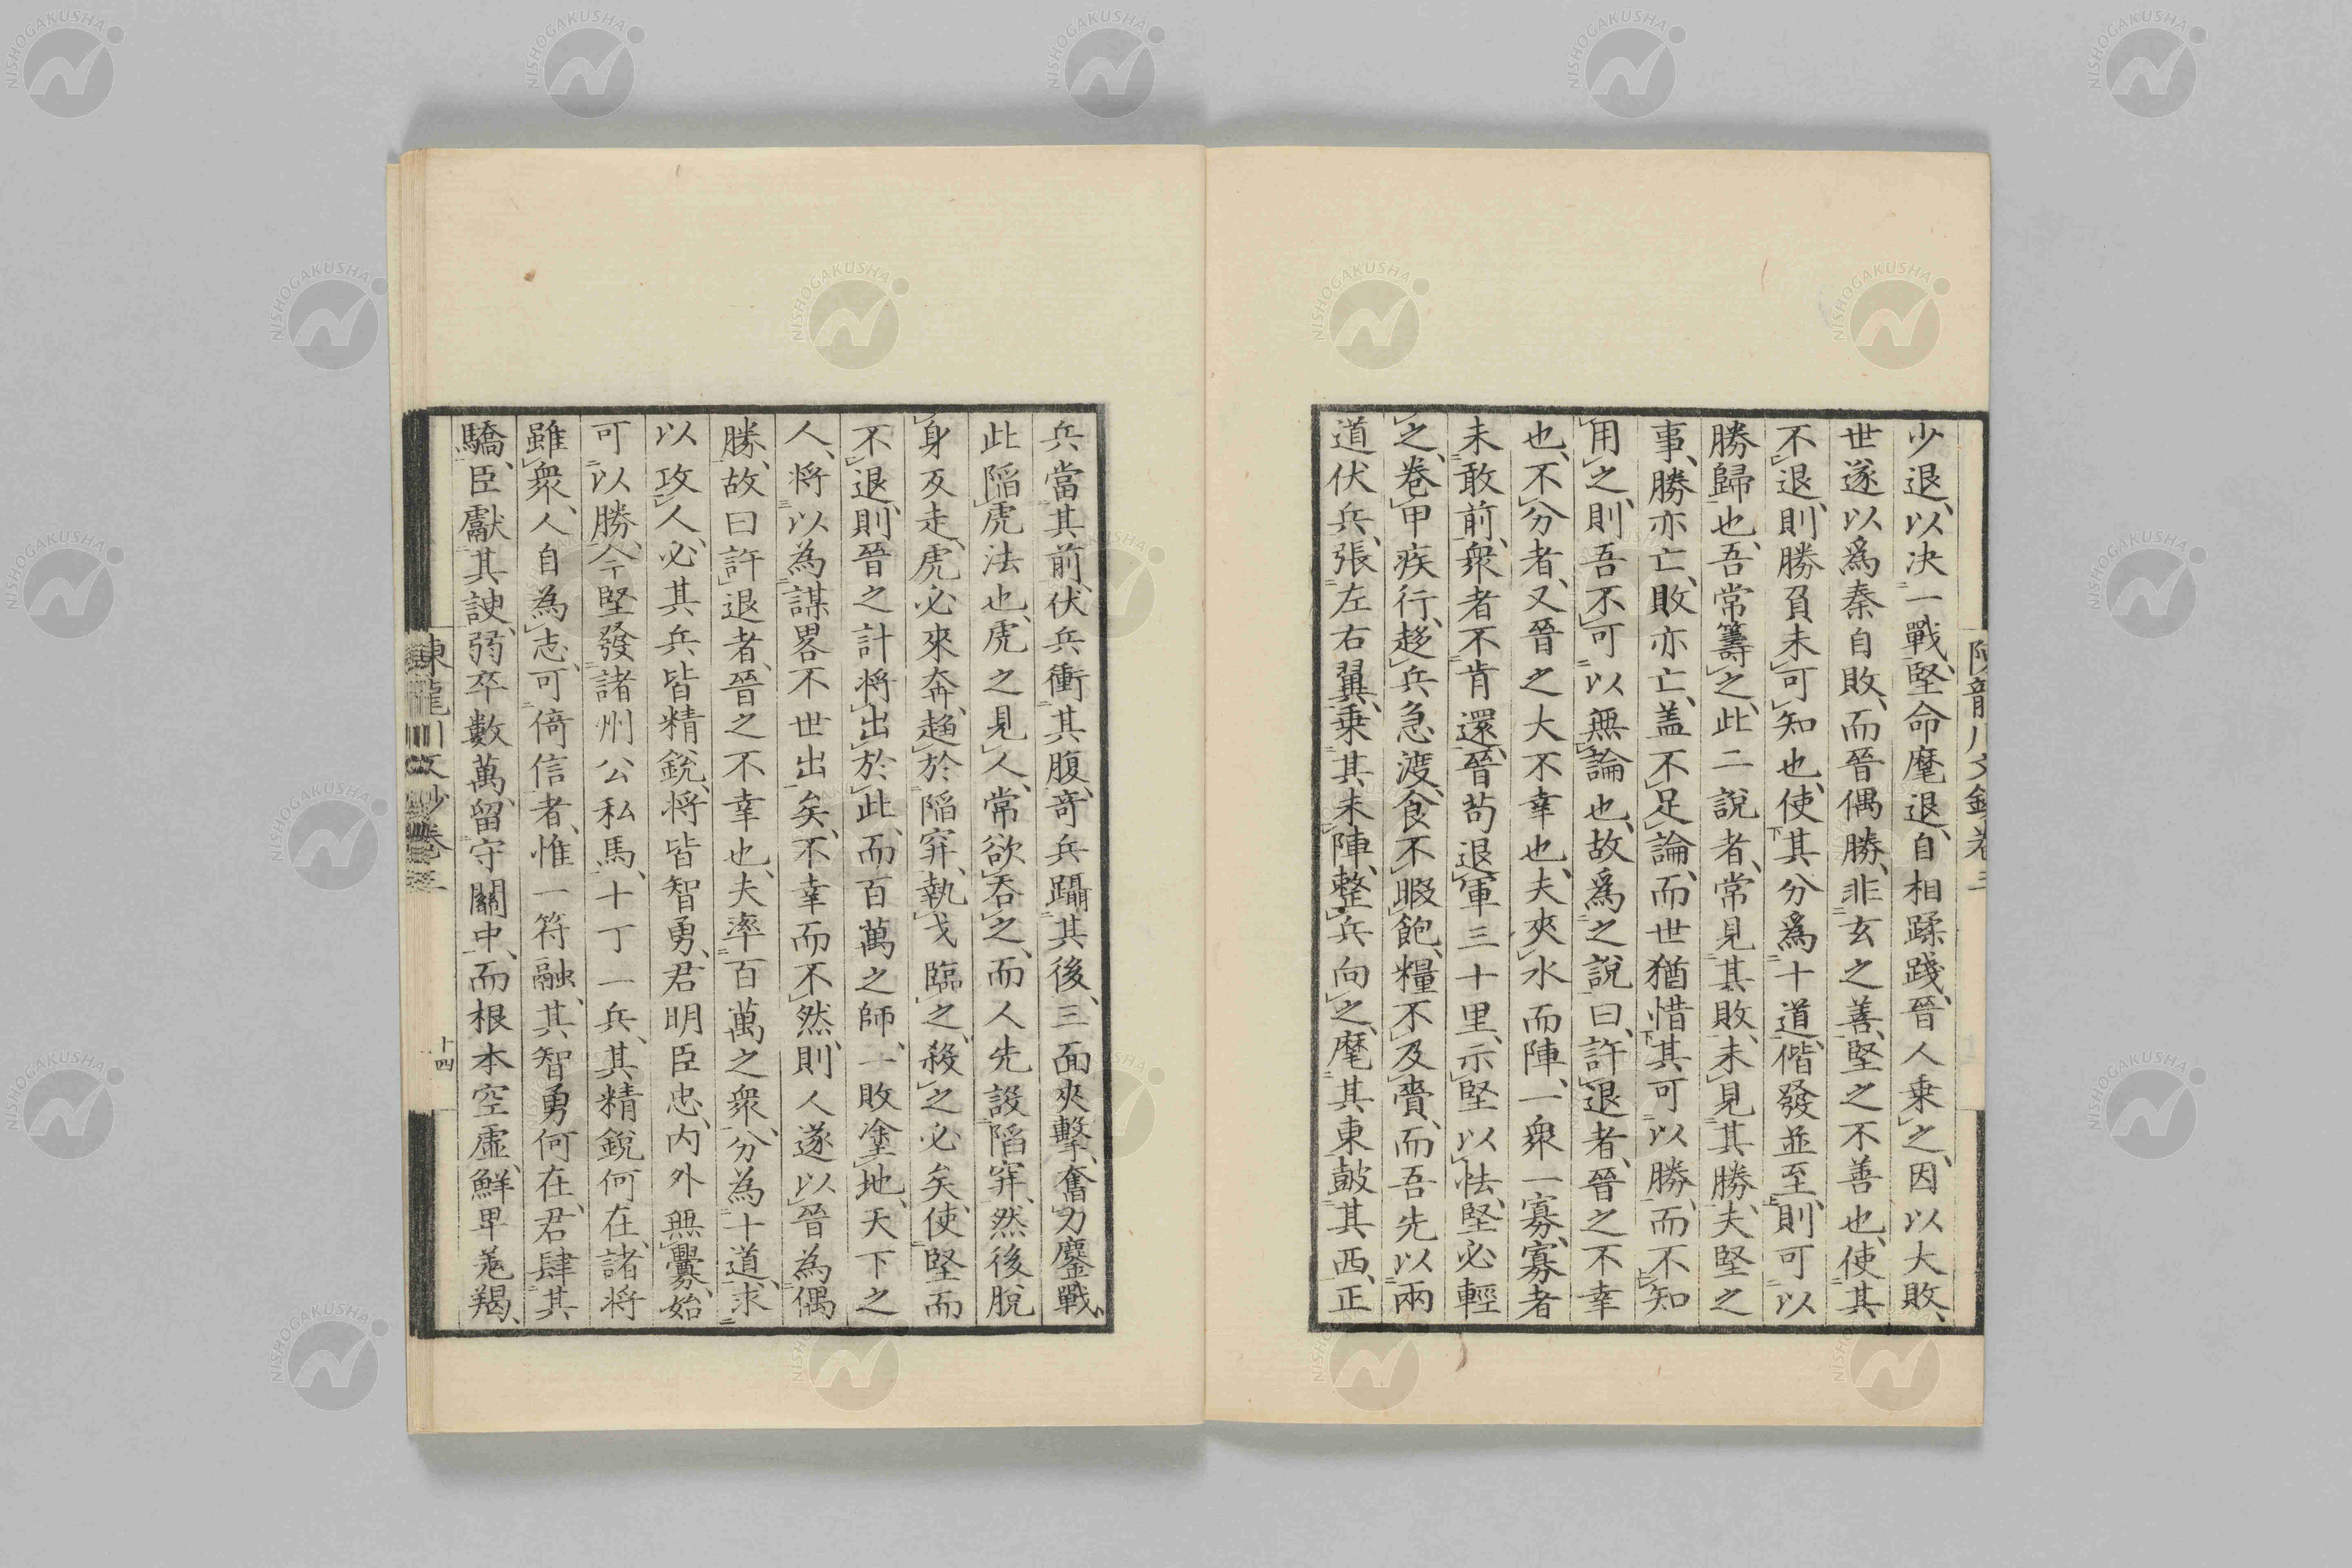 少退、以決一戰、堅命麾退、自相蹂踐、晉人乘之、因以大敗、
世遂以爲秦自敗、而晉偶勝、非玄之善、堅之不善也、使其
不退、則勝負未可知也、使其分爲十道、偕發並至、則可以
勝歸也、吾常籌之、此二說者、常見其敗、未見其勝、夫堅之
事、勝亦亡、敗亦亡、蓋不足論、而世猶惜其可以勝、而不知
用之、則吾不可以無論也、故爲之說曰、許退者、晉之不幸
也、不分者、又晉之大不幸也、夫夾水而陣、一衆一寡、寡者
未敢前、衆者不肯還、晉苟退軍三十里、示堅以怯、堅必輕
之、卷甲疾行、趍兵急渡、食不暇飽、糧不及賷、而吾先以兩
道伏兵、張左右翼、乘其未陣、整兵向之、麾其東、鼓其西、正
兵當其前、伏兵衝其腹、奇兵躡其後、三面夾擊、奮力鏖戰、
此陷虎法也、虎之見人、常欲呑之、而人先設陷穽、然後脫
身反走、虎必來奔、趨於陷穽、執戈臨之、殺之必矣、使堅而
不退、則晉之計將出於此、而百萬之師、一敗塗地、天下之
人、將以為謀畧不世出矣、不幸而不然、則人遂以晉為偶
勝、故曰許退者、晉之不幸也、夫率百萬之衆、分為十道、求
以攻人、必其兵皆精銳、將皆智勇、君明臣忠、内外無釁、始
可以勝、今堅發諸州公私馬、十丁一兵、其精銳何在、諸將
雖衆、人自為志、可倚信者、惟一符融、其智勇何在、君肆其
驕、臣獻其諛、弱卒數萬、留守關中、而根本空虛、鮮卑羌羯、
陳龍川文鈔卷三
十四
NISHOGAKUSHA